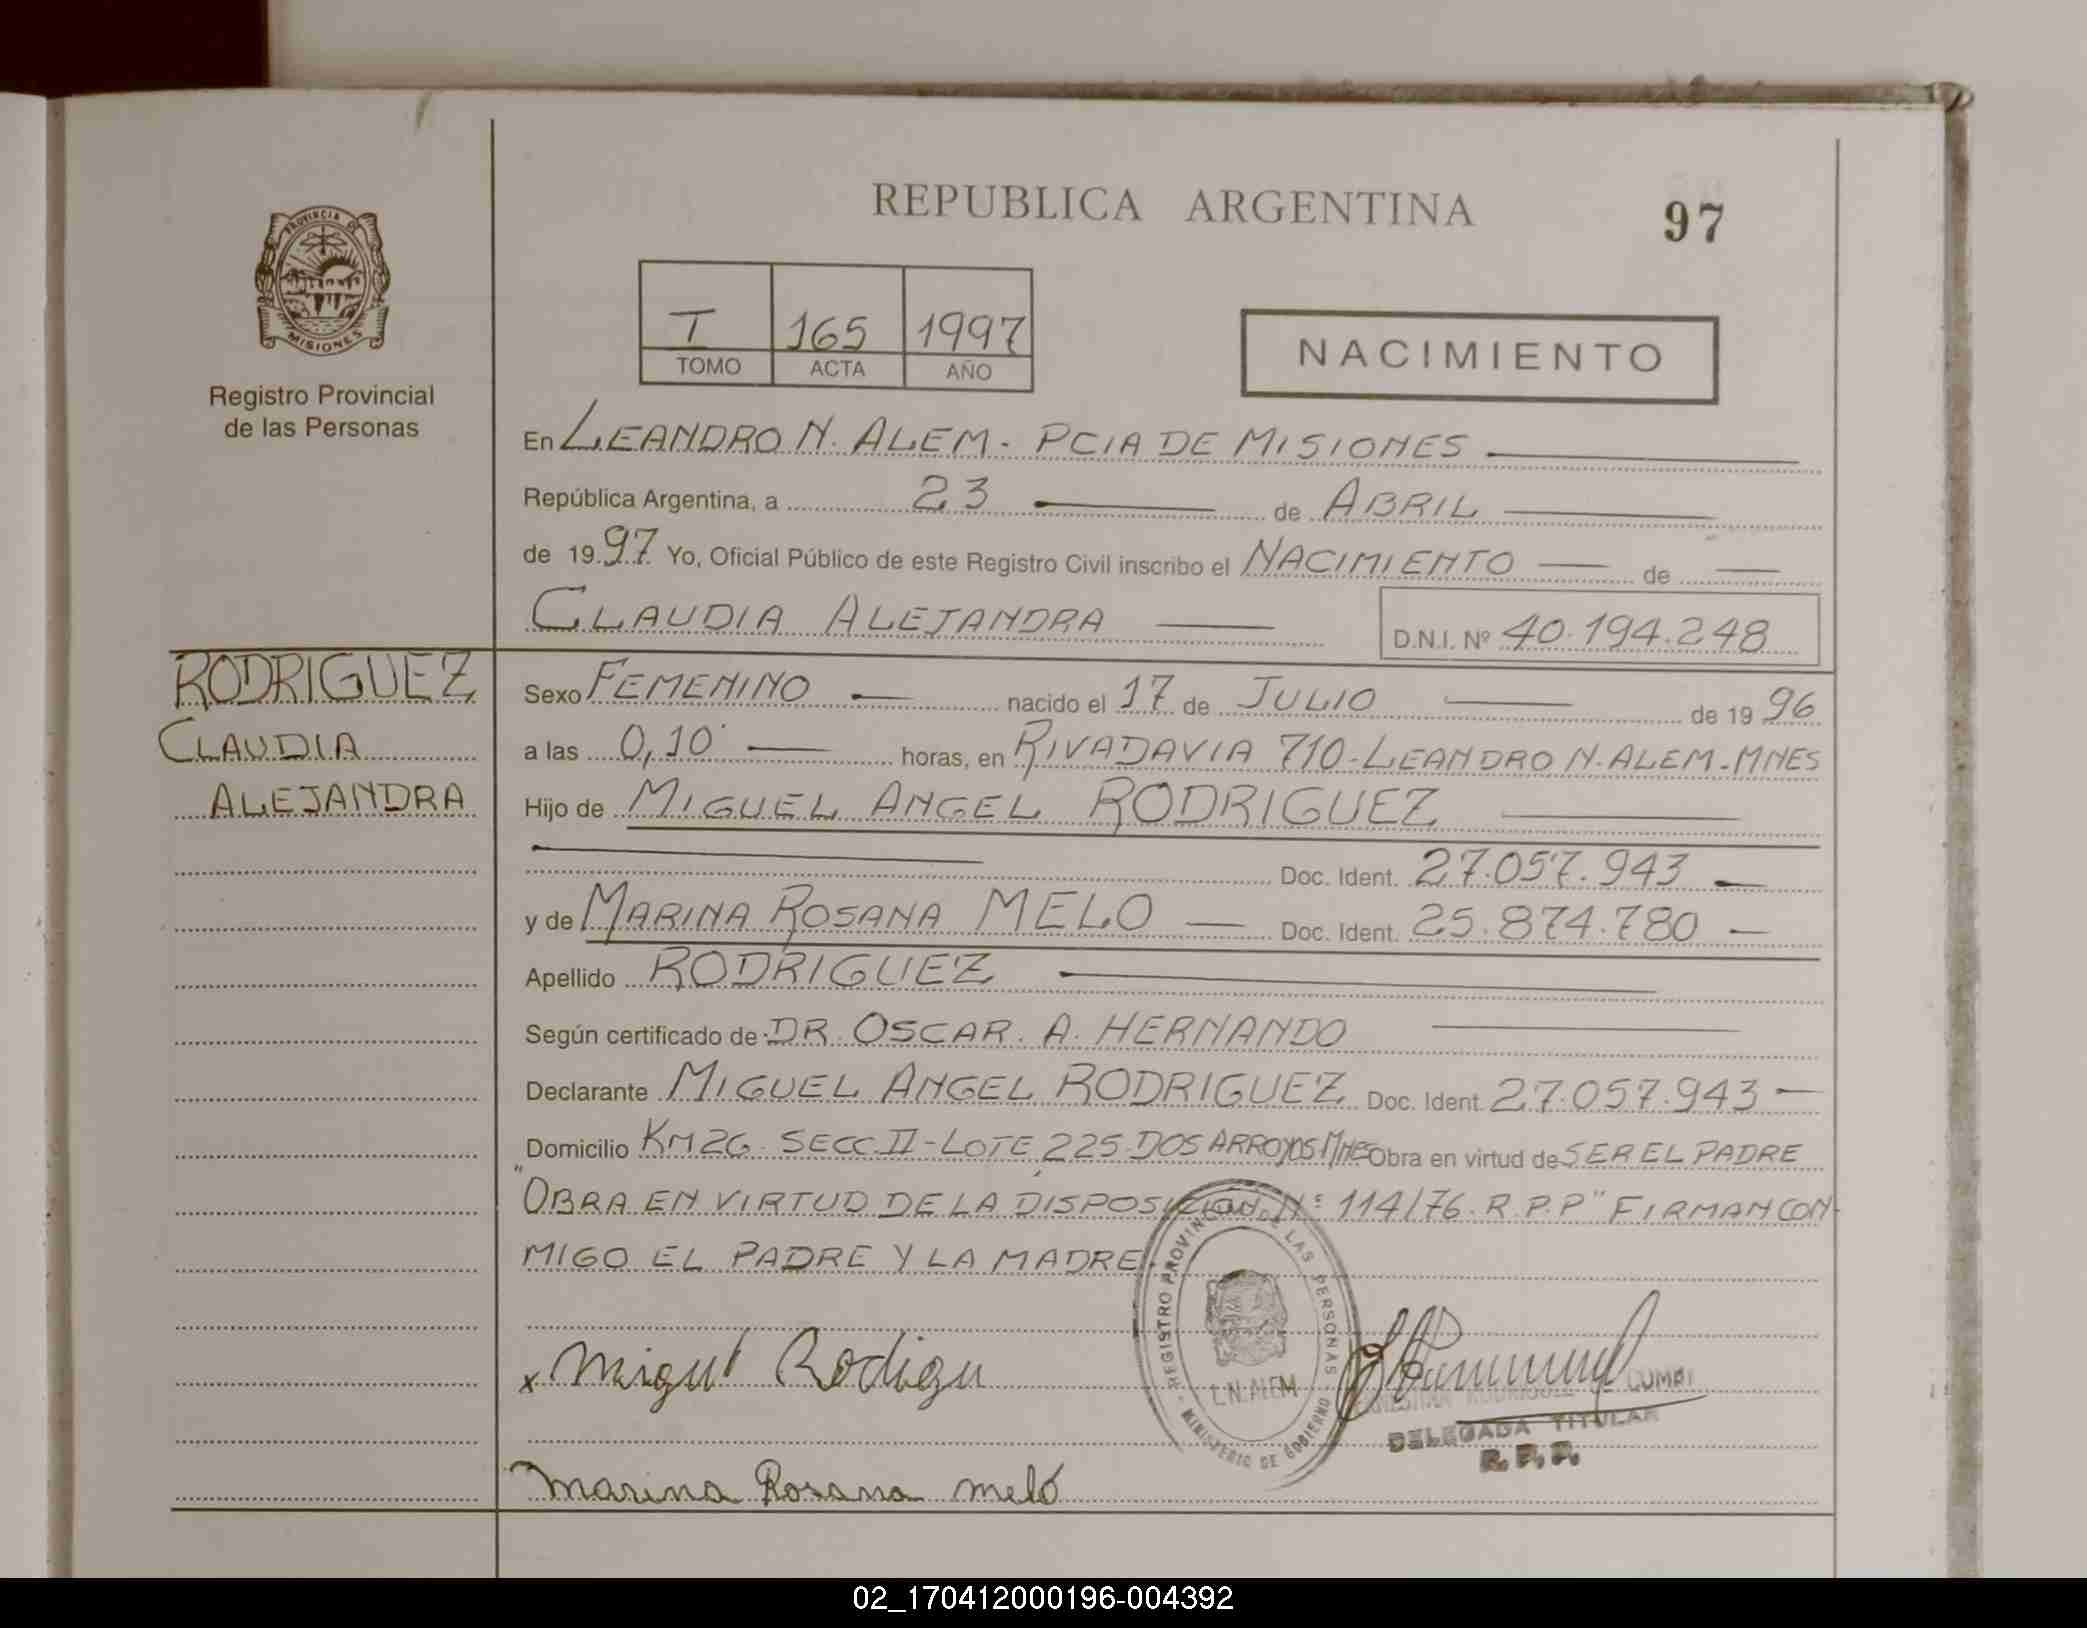 REPUBLICA ARGENTINA
97
PROVINCIA DE
MISIONES
Registro Provincial
de las Personas
I 165 1997
TOMO ACTA AÑO
NACIMIENTO
En LEANDRO N. ALEM - PCIA DE MISIONES
República Argentina, a 23 de ABRIL
de 1997 Yo, Oficial Público de este Registro Civil inscribo el NACIMIENTO de
CLAUDIA ALEJANDRA D.N.I. Nº 40.194.248
RODRIGUEZ
CLAUDIA
ALEJANDRA
Sexo FEMENINO nacido el 17 de JULIO de 1996
a las 0,10' horas, en RIVADAVIA 710-LEANDRO N. ALEM-MNES
Hijo de MIGUEL ANGEL RODRIGUEZ
Doc. Ident. 27.057.943
y de MARINA ROSANA MELO Doc. Ident. 25.874.780
Apellido RODRIGUEZ
Según certificado de DR. OSCAR. A. HERNANDO
Declarante MIGUEL ANGEL RODRIGUEZ Doc. Ident. 27.057.943
Domicilio KM26. SECC. II - LOTE 225. DOS ARROYOS MNES Obra en virtud de SER EL PADRE
"OBRA EN VIRTUD DE LA DISPOSICIÓN Nº 114/76. R.P.P" FIRMAN CON-
MIGO EL PADRE Y LA MADRE.
REGISTRO PROVINCIAL DE LAS PERSONAS
L.N. ALEM
MINISTERIO DE GOBIERNO
x Miguel Rodigu
DELEGADA TITULAR
R.P.P.
Marina Rosana Meló
02_170412000196-004392